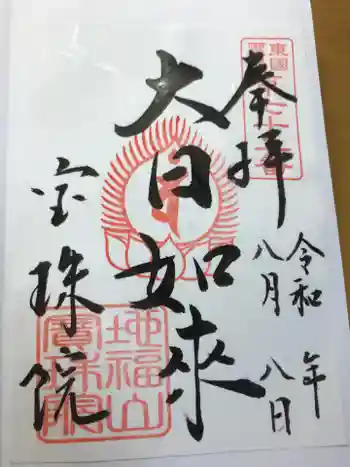 奉拝
令和 年
八月八日
大日如来
宝珠院
地福山
寶珠院